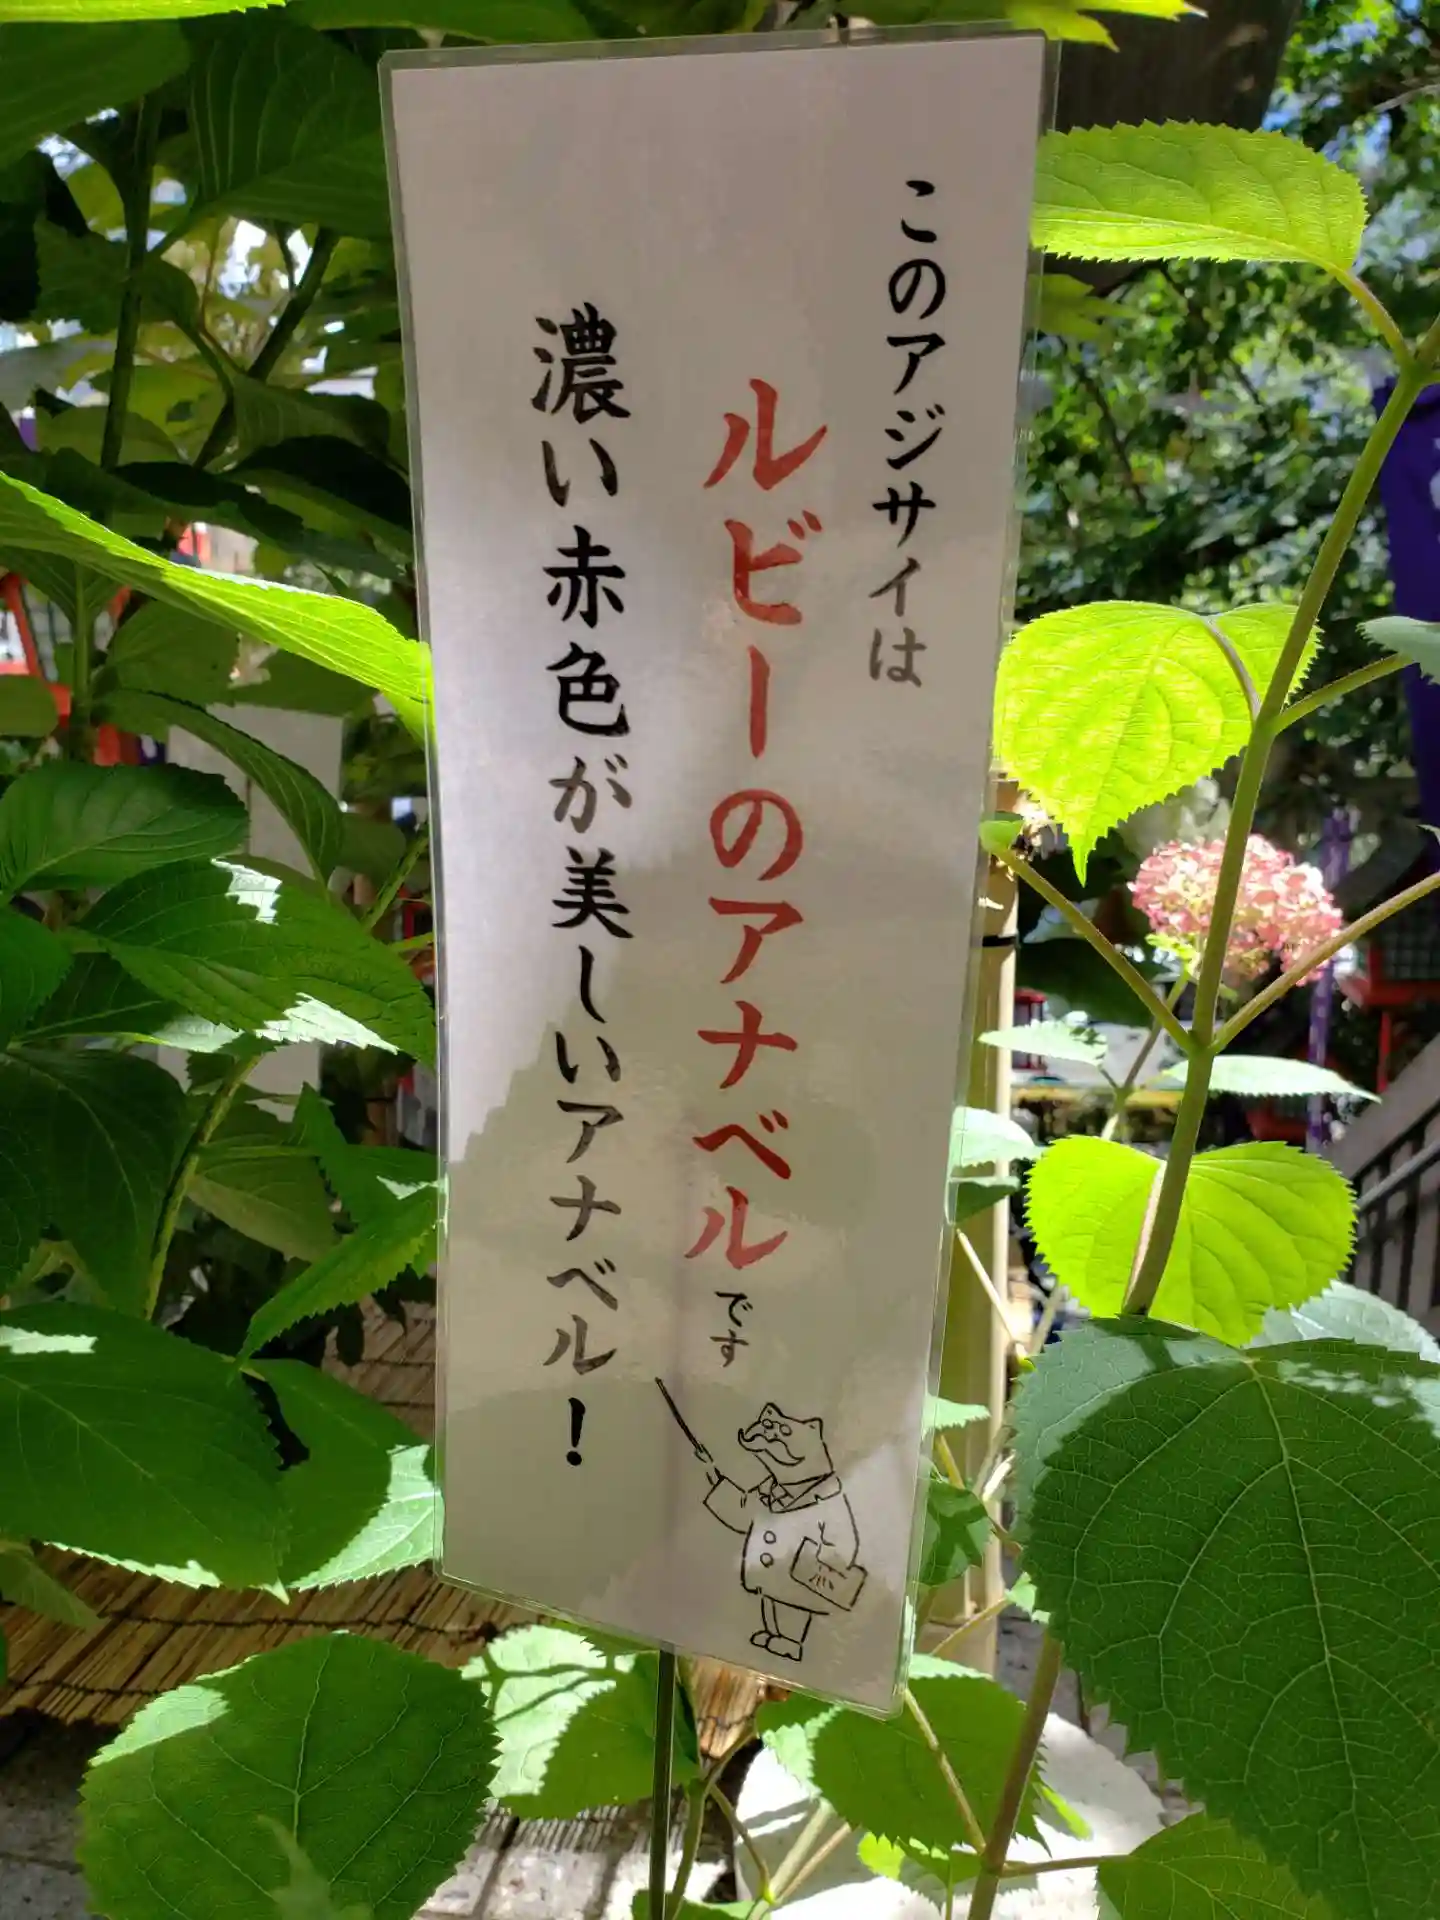 このアジサイは
ルビーのアナベルです
濃い赤色が美しいアナベル！